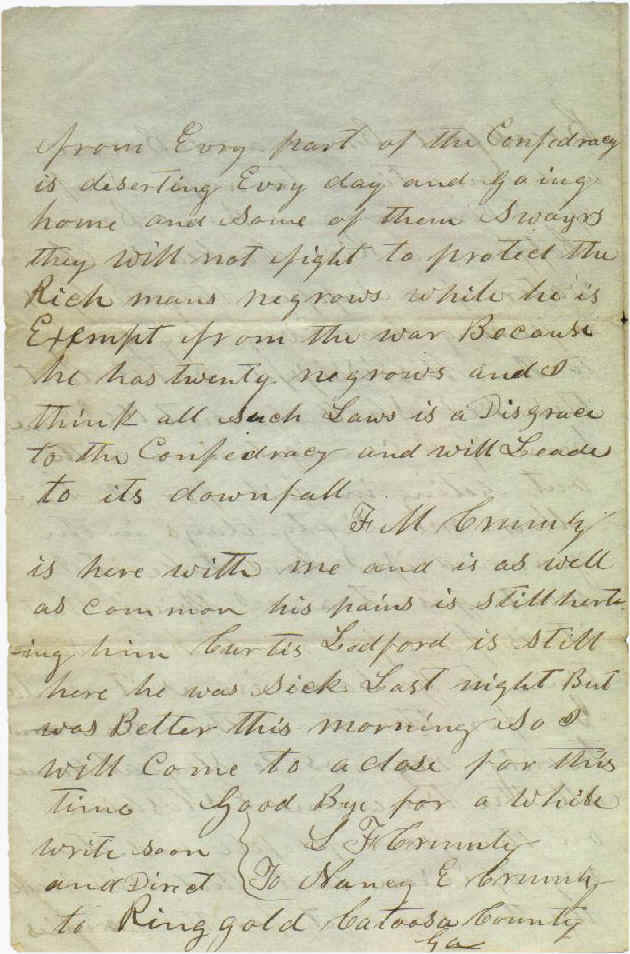 from Evry part of the Confedracy
is diserting Evry day and going
home and some of them Swayrs
they will not fight to protect the
Rich mans negrows while he is
Exempt from the war Because
he has twenty negrows and I
think all such Laws is a Disgrace
to the Confedracy and will Leade
to its downfall
F M Crumly
is here with me and is as well
as common his pains is still hert
-ing him Curtis Ledford is still
here he was sick Last night But
was Better this morning so I
will Come to a close for this
time Good Bye for a while
write soon L F Crumly
and Direct To Nancy E Crumly
to Ringgold Catoosa County
Ga